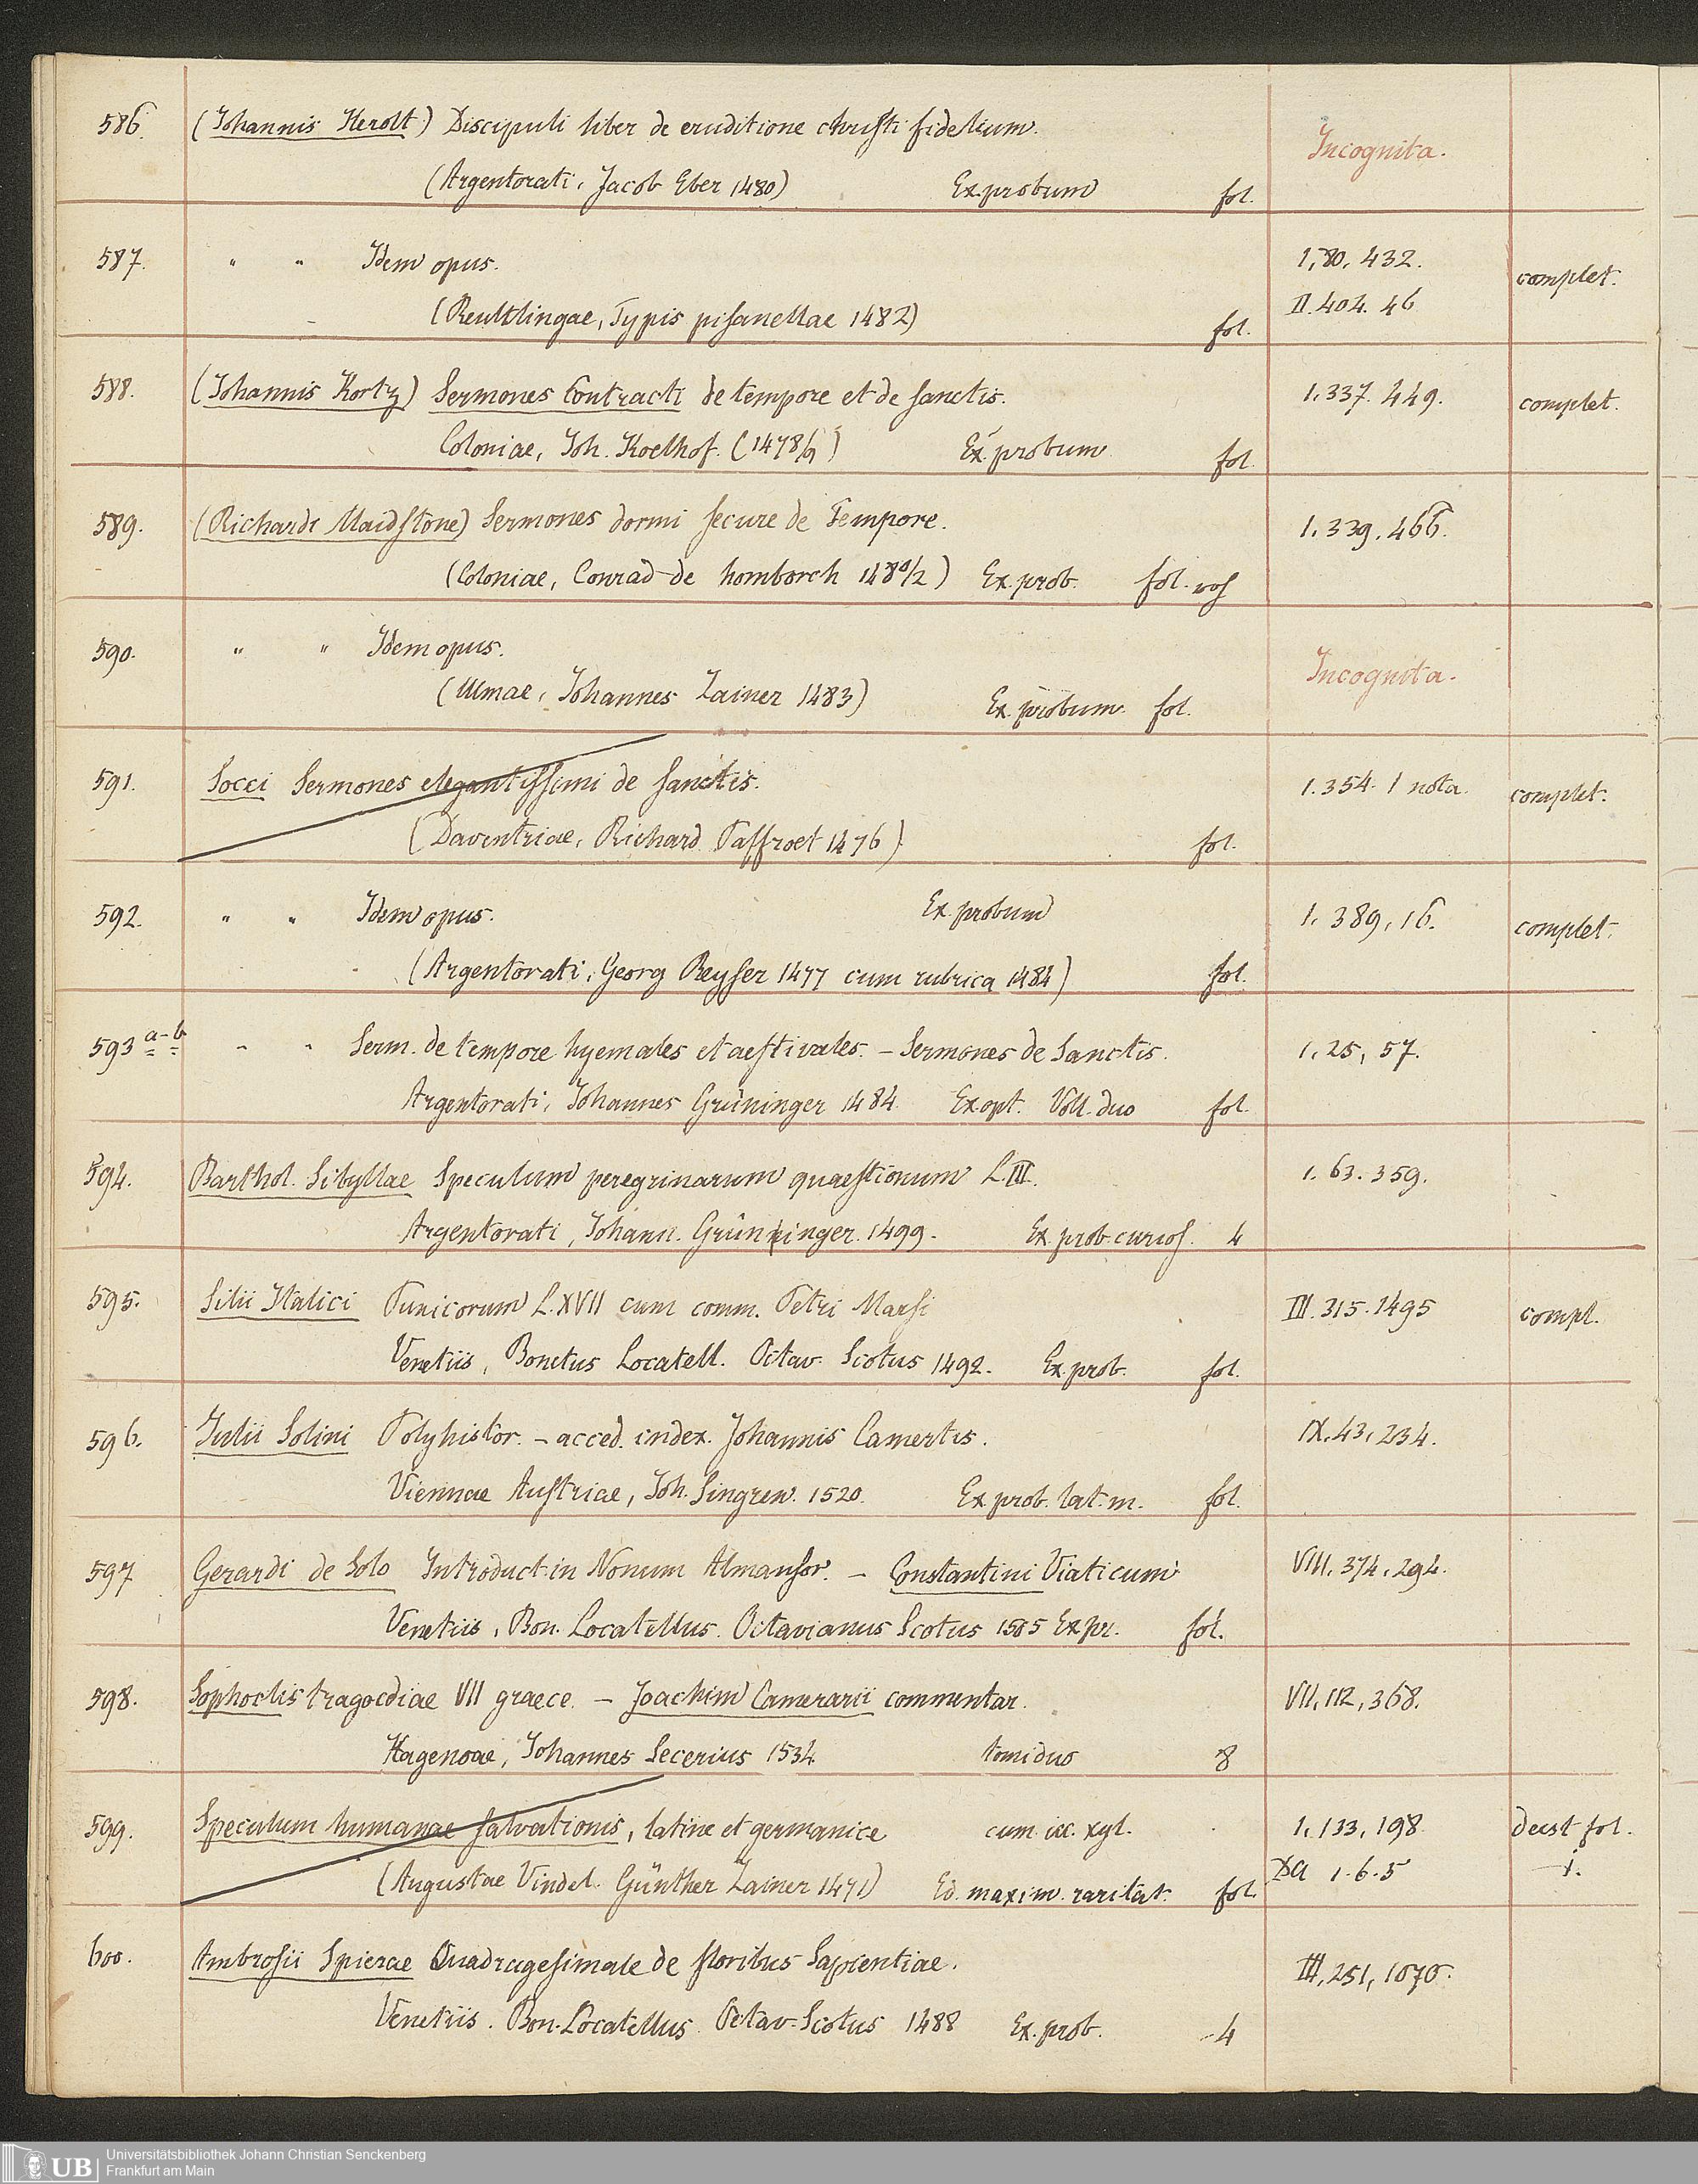 586. (Johannis Herolt) Discipuli liber de eruditione christi fidelium. Incognita.
(Argentorati, Jacob Eber 1480) Ex. probum fol.
587. " " Idem opus. 1, 80, 432. complet.
(Reutlingae, Typis pisanellae 1482) fol. II. 404. 46
588. (Johannis Kortz) Sermones Contracti de tempore et de sanctis. 1. 337. 449. complet.
Coloniae, Joh. Koelhof. (1478/9) Ex. probum fol.
589. (Richardi Maidstone) Sermones dormi secure de Tempore. 1. 339. 466.
(Coloniae, Conrad de homborch 1480/2) Ex. prob. fol.
590. " " Idem opus. Incognita.
(Ulmae, Johannes Zainer 1483) Ex. probum. fol.
591. Socci Sermones elegantissimi de sanctis. 1. 354. 1 nota. complet.
(Daventriae, Richard Paffroet 1476) fol.
592. " " Idem opus. Ex. probum 1. 389, 16. complet.
(Argentorati, Georg Reyser 1477 cum rubrica 1484) fol.
593 a-b " " Serm. de tempore hyemales et aestivales. – Sermones de Sanctis. 1, 25, 57.
Argentorati, Johannes Grüninger 1484. Ex opt. Voll. duo fol.
594. Barthol. Sibyllae Speculum peregrinarum quaestionum L. III. 1. 63. 359.
Argentorati, Johann. Grüninger. 1499. Ex. prob. curios. 4
595. Silii Italici Punicorum L. XVII cum comm. Petri Marsi III. 315. 1495 compl.
Venetiis, Bonetus Locatell. Octav. Scotus 1492. Ex. prob. fol.
596. Julii Solini Polyhistor. – acced. index. Johannis Camertis. IX. 43, 234.
Viennae Austriae, Joh. Singren. 1520. Ex. prob. lat. m. fol.
597 Gerardi de Solo Introduct. in Nonum Almansor. – Constantini Viaticum VIII, 374, 294.
Venetiis, Bon. Locatellus. Octavianus Scotus 1505 Ex pr. fol.
598. Sophoclis tragoediae VII graece. – Joachimi Camerarii commentar. VII, 112, 368.
Hagenoae, Johannes Secerius 1534 tomi duo 8
599. Speculum humanae salvationis, latine et germanice cum ic. xyl. 1, 133, 198 deest fol.
(Augustae Vindel. Günther Zainer 1471) Ed. maxim. raritat. fol. 1. 6. 5 1.
600. Ambrosii Spierae Quadragesimale de floribus Sapientiae. III, 251, 1070.
Venetiis. Bon. Locatellus. Octav. Scotus 1488 Ex. prob. 4
UB Universitätsbibliothek Johann Christian Senckenberg
Frankfurt am Main